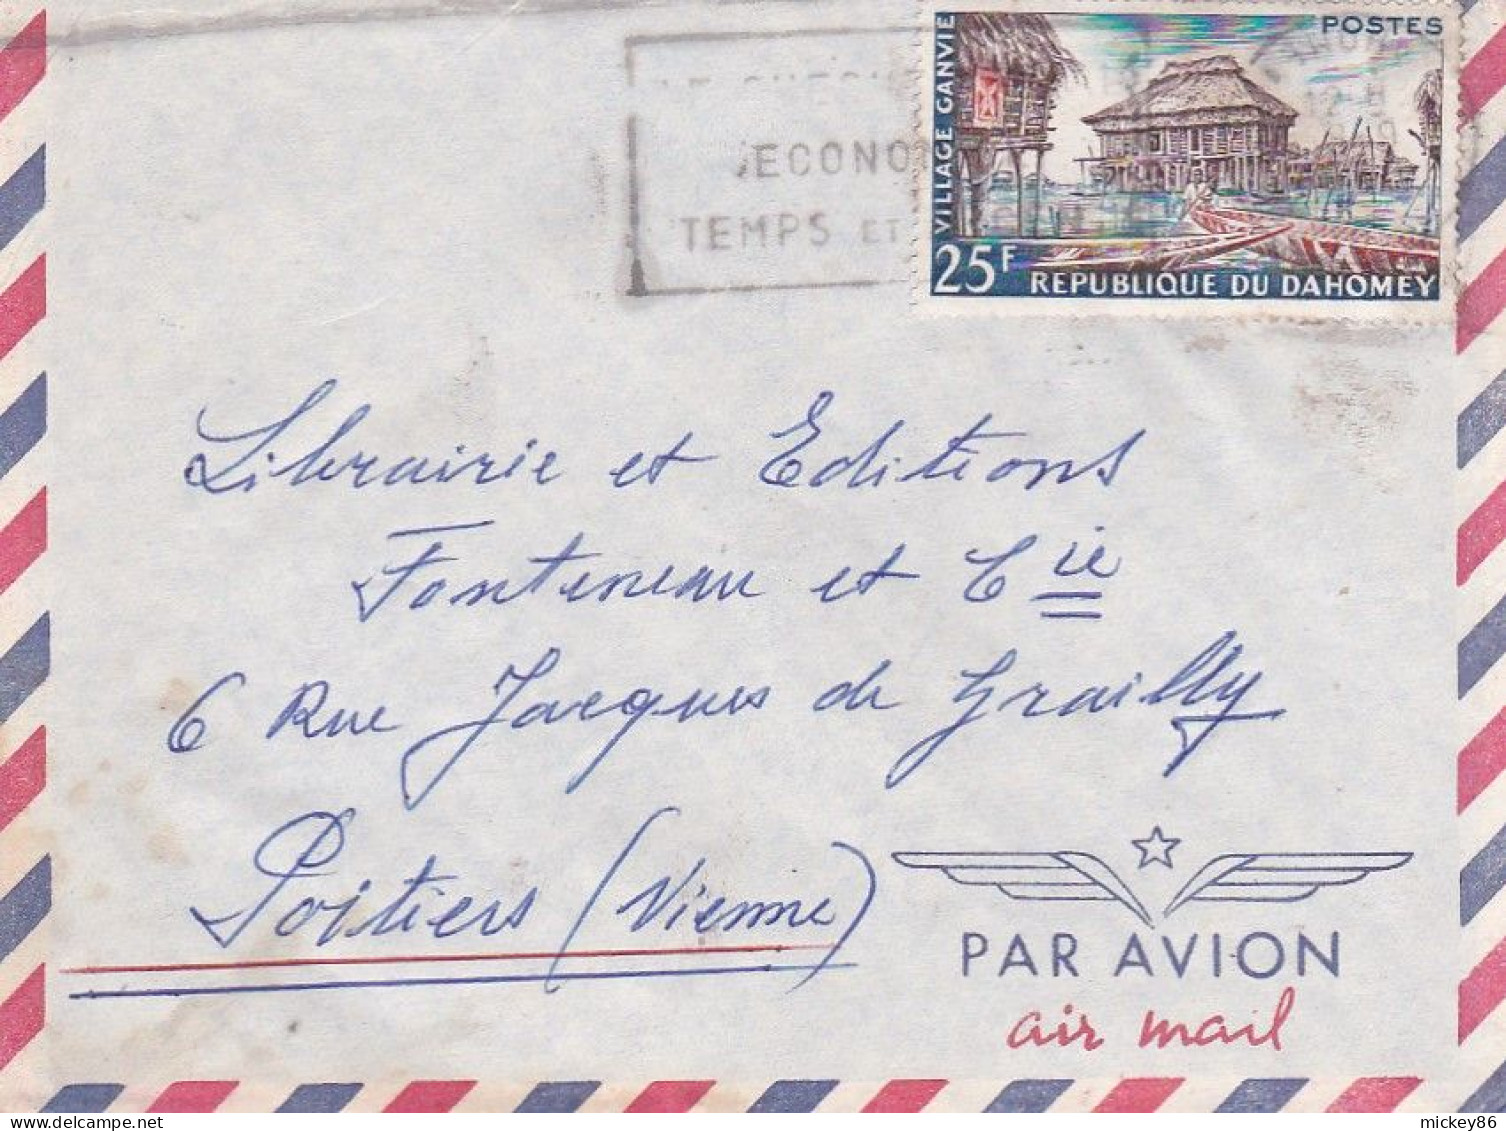 ECONO
TEMPS ET
POSTES
VILLAGE GANVIE
25F REPUBLIQUE DU DAHOMEY
Librairie et Editions
Fonteneau et Cie
6 Rue Jacques de Grailly
Poitiers (Vienne)
PAR AVION
air mail
mickey86